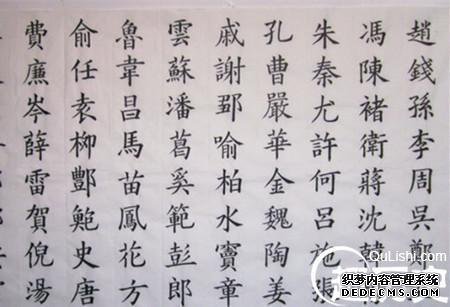 趙錢孫李周吳鄭
馮陳褚衛蔣沈韓
朱秦尤許何呂施張
孔曹嚴華金魏陶姜
戚謝鄒喻柏水竇章
雲蘇潘葛奚範彭郎
魯韋昌馬苗鳳花方
俞任袁柳酆鮑史唐
費廉岑薛雷賀倪湯
QuLishi.com
织梦内容管理系统
DEDECMS.COM